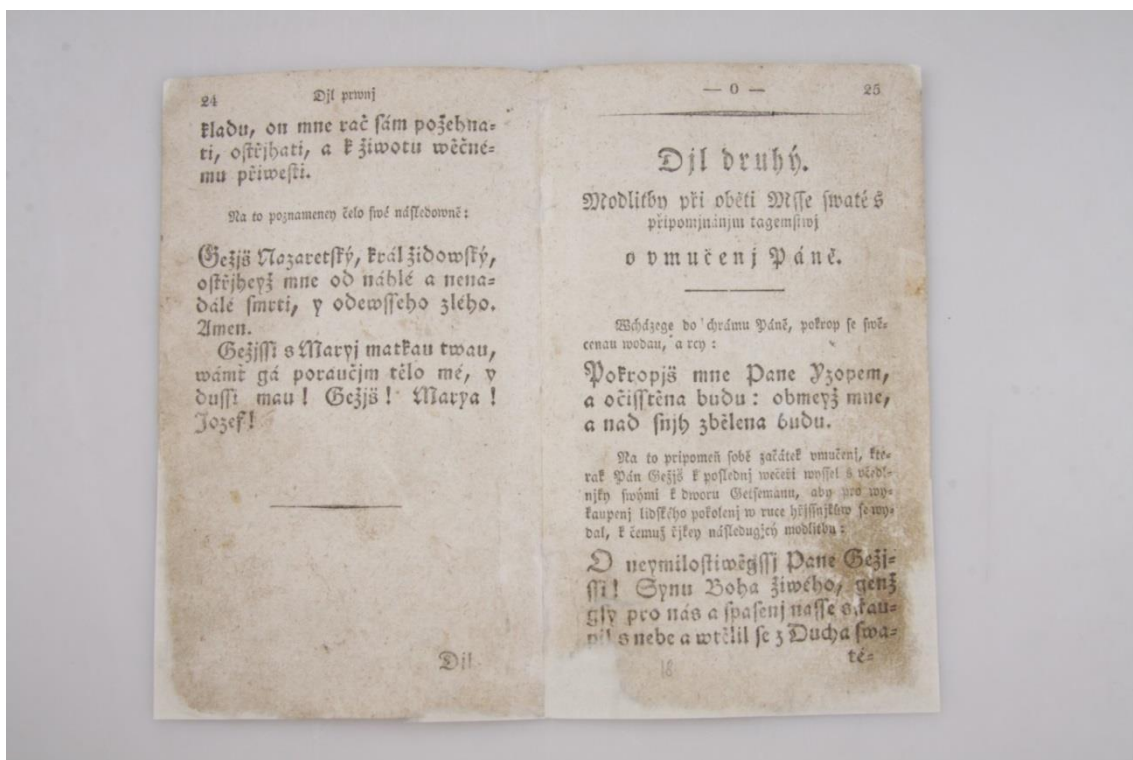 24 Djl prwnj
kladu, on mne rač sám požehna=
ti, ostřjhati, a k žiwotu wěčné=
mu přiwesti.
Na to poznameney čelo swé následowně:
Gežjš Nazaretský, král židowský,
ostřjheyž mne od náhlé a nena=
dálé smrti, y odewsseho zlého.
Amen.
Gežjssi s Maryj matkau twau,
wámť gá poraučjm tělo mé, y
dussi mau! Gežjš! Marya!
Jozef!
Djl
— 0 — 25
Djl druhý.
Modlitby při oběti Msse swaté s
připomjnánjm tagemstwj
o vmučenj Páně.
Wcházege do chrámu Páně, pokrop se swě=
cenau wodau, a rcy:
Pokropjš mne Pane Yzopem,
a očisstěna budu: obmeyž mne,
a nad snjh zbělena budu.
Na to připomeň sobě začátek vmučenj, kte=
rak Pán Gežjš k poslednj wečeři wyssel s včedl=
njky swými k dworu Getsemanu, aby pro wy=
kaupenj lidského pokolenj w ruce hřjssnjků se wy=
dal, k čemuž řjkey následugjcý modlitbu:
O neymilostiwěgssj Pane Gežj=
ssi! Synu Boha žiwého, genž
gsy pro nás a spasenj nasse s,kau=
pil s nebe a wtělil se z Ducha swa=
té=
18